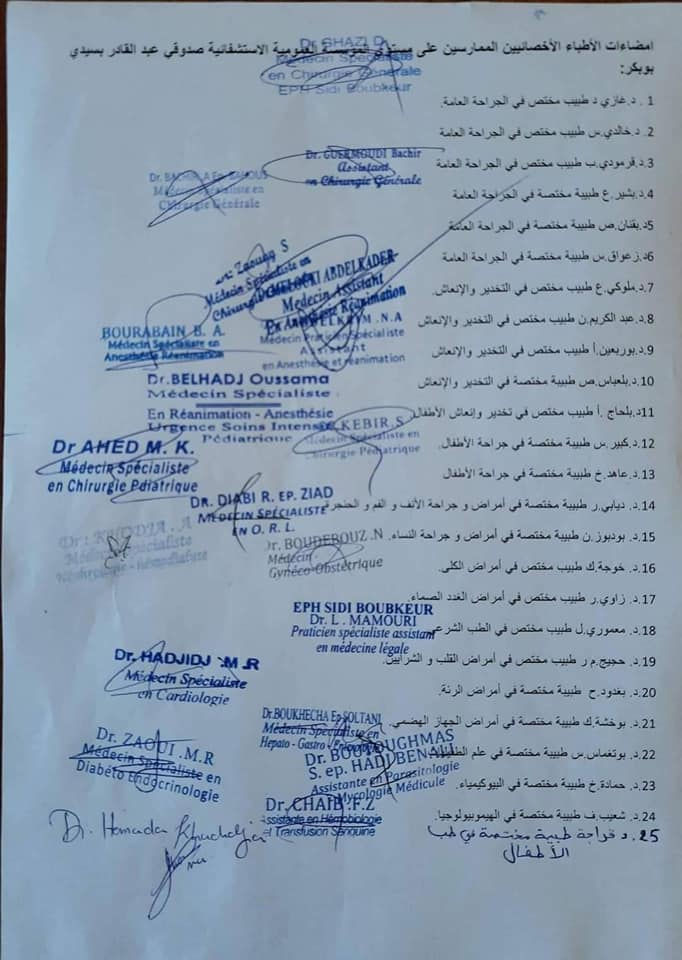 امضاءات الأطباء الأخصائيين الممارسين على مستوى المؤسسة العمومية الاستشفائية صدوقي عبد القادر بسيدي
بوبكر:
Dr GHAZI D
Médecin Spécialiste
en Chirurgie Générale
EPH Sidi Boubkeur
1 .د.غازي د طبيب مختص في الجراحة العامة.
2.د. خالدي.س طبيب مختص في الجراحة العامة
3.د.قرمودي.ب طبيب مختص في الجراحة العامة
Dr. GUERMOUDI Bachir
Assistant
en Chirurgie Générale
4.د.بشير.ع طبيبة مختصة في الجراحة العامة
Médecin Spécialiste en
Chirurgie Générale
5د.بقنان.ص طبيبة مختصة في الجراحة العامة
6د.زعواق.س طبيبة مختصة في الجراحة العامة
Dr. Zaouag S
Médecin Spécialiste en
7.د.ملوكي.ع طبيب مختص في التخدير والإنعاش.
MELOUKI ABDELKADER
Médecin Assistant
En Anesthésie Réanimation
8.د.عبد الكريم.ن طبيب مختص في التخدير والإنعاش
N.A
Médecin Praticien Spécialiste
Assistant
en Anesthésie et réanimation
9.د.بوربعين.أ طبيب مختص في التخدير والإنعاش
BOURABAIN B. A.
Médecin Spécialiste en
Anesthésie Réanimation
10.د.بلعباس.ص طبيبة مختصة في التخدير والإنعاش
11د.بلحاج .أ طبيب مختص في تخدير وإنعاش الأطفال
Dr.BELHADJ Oussama
Médecin Spécialiste
En Réanimation - Anesthésie
Urgence Soins Intensifs
Pédiatrique
12.د.كبير.س طبيبة مختصة في جراحة الأطفال.
KEBIR.S
Médecin Spécialiste en
Chirurgie Pédiatrique
13.د.عاهد.خ طبيب مختص في جراحة الأطفال
Dr AHED M. K.
Médecin Spécialiste
en Chirurgie Pdiatrique
14.د. ديابي.ر طبيبة مختصة في أمراض و جراحة الأنف و الفم و الحنجرة
DR. DIABI R. EP. ZIAD
MÉDECIN SPÉCIALISTE
EN O. R. L.
15.د. بودبوز.ن طبيبة مختصة في أمراض و جراحة النساء.
Dr. BOUDEBOUZ .N
Médecin
Gynéco-Obstétrique
16.د. خوجة.ك طبيب مختص في أمراض الكلى.
Dr : KHODJA .A
Médecin Spécialiste
Néphrologie - hémodialyse
17.د. زاوي.ر طبيب مختص في أمراض الغدد الصماء.
18.د. معموري.ل طبيب مختص في الطب الشرعي
EPH SIDI BOUBKEUR
Dr. L . MAMOURI
Praticien spécialiste assistant
en médecine légale
19.د. حجيج.م ر طبيب مختص في أمراض القلب و الشرايين.
Dr. HADJIDJ .M .R
Médecin Spécialiste
en Cardiologie
20.د. بغدود.ح طبيبة مختصة في أمراض الرئة.
21.د. بوخشة.ك طبيبة مختصة في أمراض الجهاز الهضمي.
Dr.BOUKHECHA Ep SOLTANI
Médecin Spécialiste en
Hepato - Gastro -
22.د. بوتغماس.س طبيبة مختصة في علم
Dr. BOUTOUGHMAS
S. ep. HADJ
Assistante en Parasitologie
Mycologie Médicule
Dr. ZAOUI .M.R
Médecin Spécialiste en
Diabéto Endocrinologie
23.د. حمادة.خ طبيبة مختصة في البيوكيمياء.
24.د. شعيب.ف طبيبة مختصة في الهيموبيولوجيا.
Dr. CHAIB .F.Z
Assistante en Hémobiologie
et Transfusion Sanguine
Dr. Hamada Khadidja
25.د فراجة طبيبة مختصة في طب
الأطفال